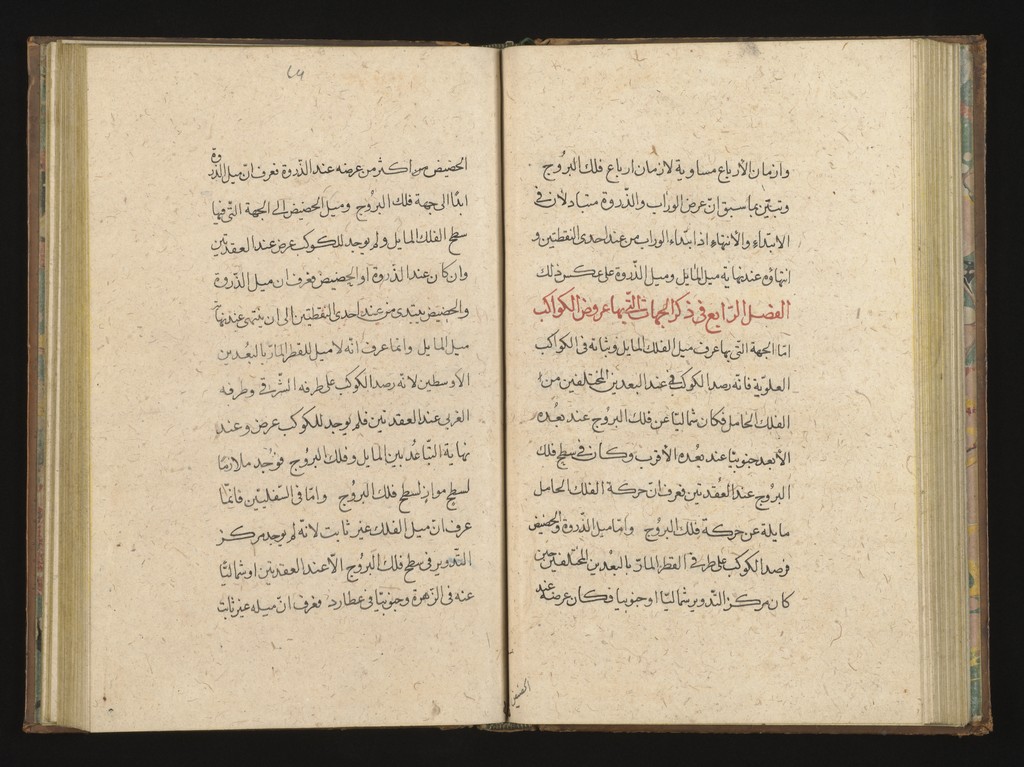 وازمان الأرباع مساوية لازمان ارباع فلك البروج
وتبيّن بما سبق انّ عرض الوراب والذّروة متبادلان في
الابتداء والأنتهاء اذ ابتداء الوراب من عند احدى النقطتين و
انتهاؤه عند نهاية ميل المايل وميل الذّروة على عكس ذلك
الفصل الرّابع فى ذكر الجهات التى بها عروض الكواكب
امّا الجهة التى بها عرف ميل الفلك المايل وثباته فى الكواكب
العلويّة فانّه رصد الكوكب عند البعدين المختلفين من
الفلك الحامل فكان شماليّا عن فلك البروج عند بعده
الأبعد جنوبيّا عند بعده الأقرب وكان فى سطح فلك
البروج عند العقدتين فعرف انّ حركة الفلك الحامل
مايلة عن حركة فلك البروج وامّا ميل الذّروة والحضيض
فرصد الكوكب على طرفى القطر المارّ بالبعدين المختلفين حين
كان مركز التدوير شماليّا او جنوبيا فكان عرضه عند
الحضيض
٤٩
الحضيض من اكثر من عرضه عند الذّروة فعرف ان ميل الذّروة
ابدًا الى جهة فلك البروج وميل الحضيض الى الجهة التى فيها
سطح الفلك المايل ولم يوجد للكوكب عرض عند العقدتين
وان كان عند الذّروة او الحضيض فعرف ان ميل الذّروة
والحضيض يبتدى من عند احدى النقطتين الى ان ينتهى عند نهاية
ميل المايل وانما عرف انّه لا ميل للقطر المارّ بالبعدين
الأوسطين لانّه رصد الكوكب على طرفه الشّرقى وطرفه
الغربى عند العقدتين فلم يوجد للكوكب عرض وعند
نهاية التّباعد بين المايل وفلك البروج فوجد ملازمًا
لسطح مواز لسطح فلك البروج وامّا فى السّفليّين فانّما
عرف انّ ميل الفلك غير ثابت لانّه لم يوجد مركز
التّدوير فى سطح فلك البروج الّا عند العقدتين او شماليّا
عنه فى الزّهرة وجنوبيّا فى عطارد فعرف انّ ميله غير ثابت